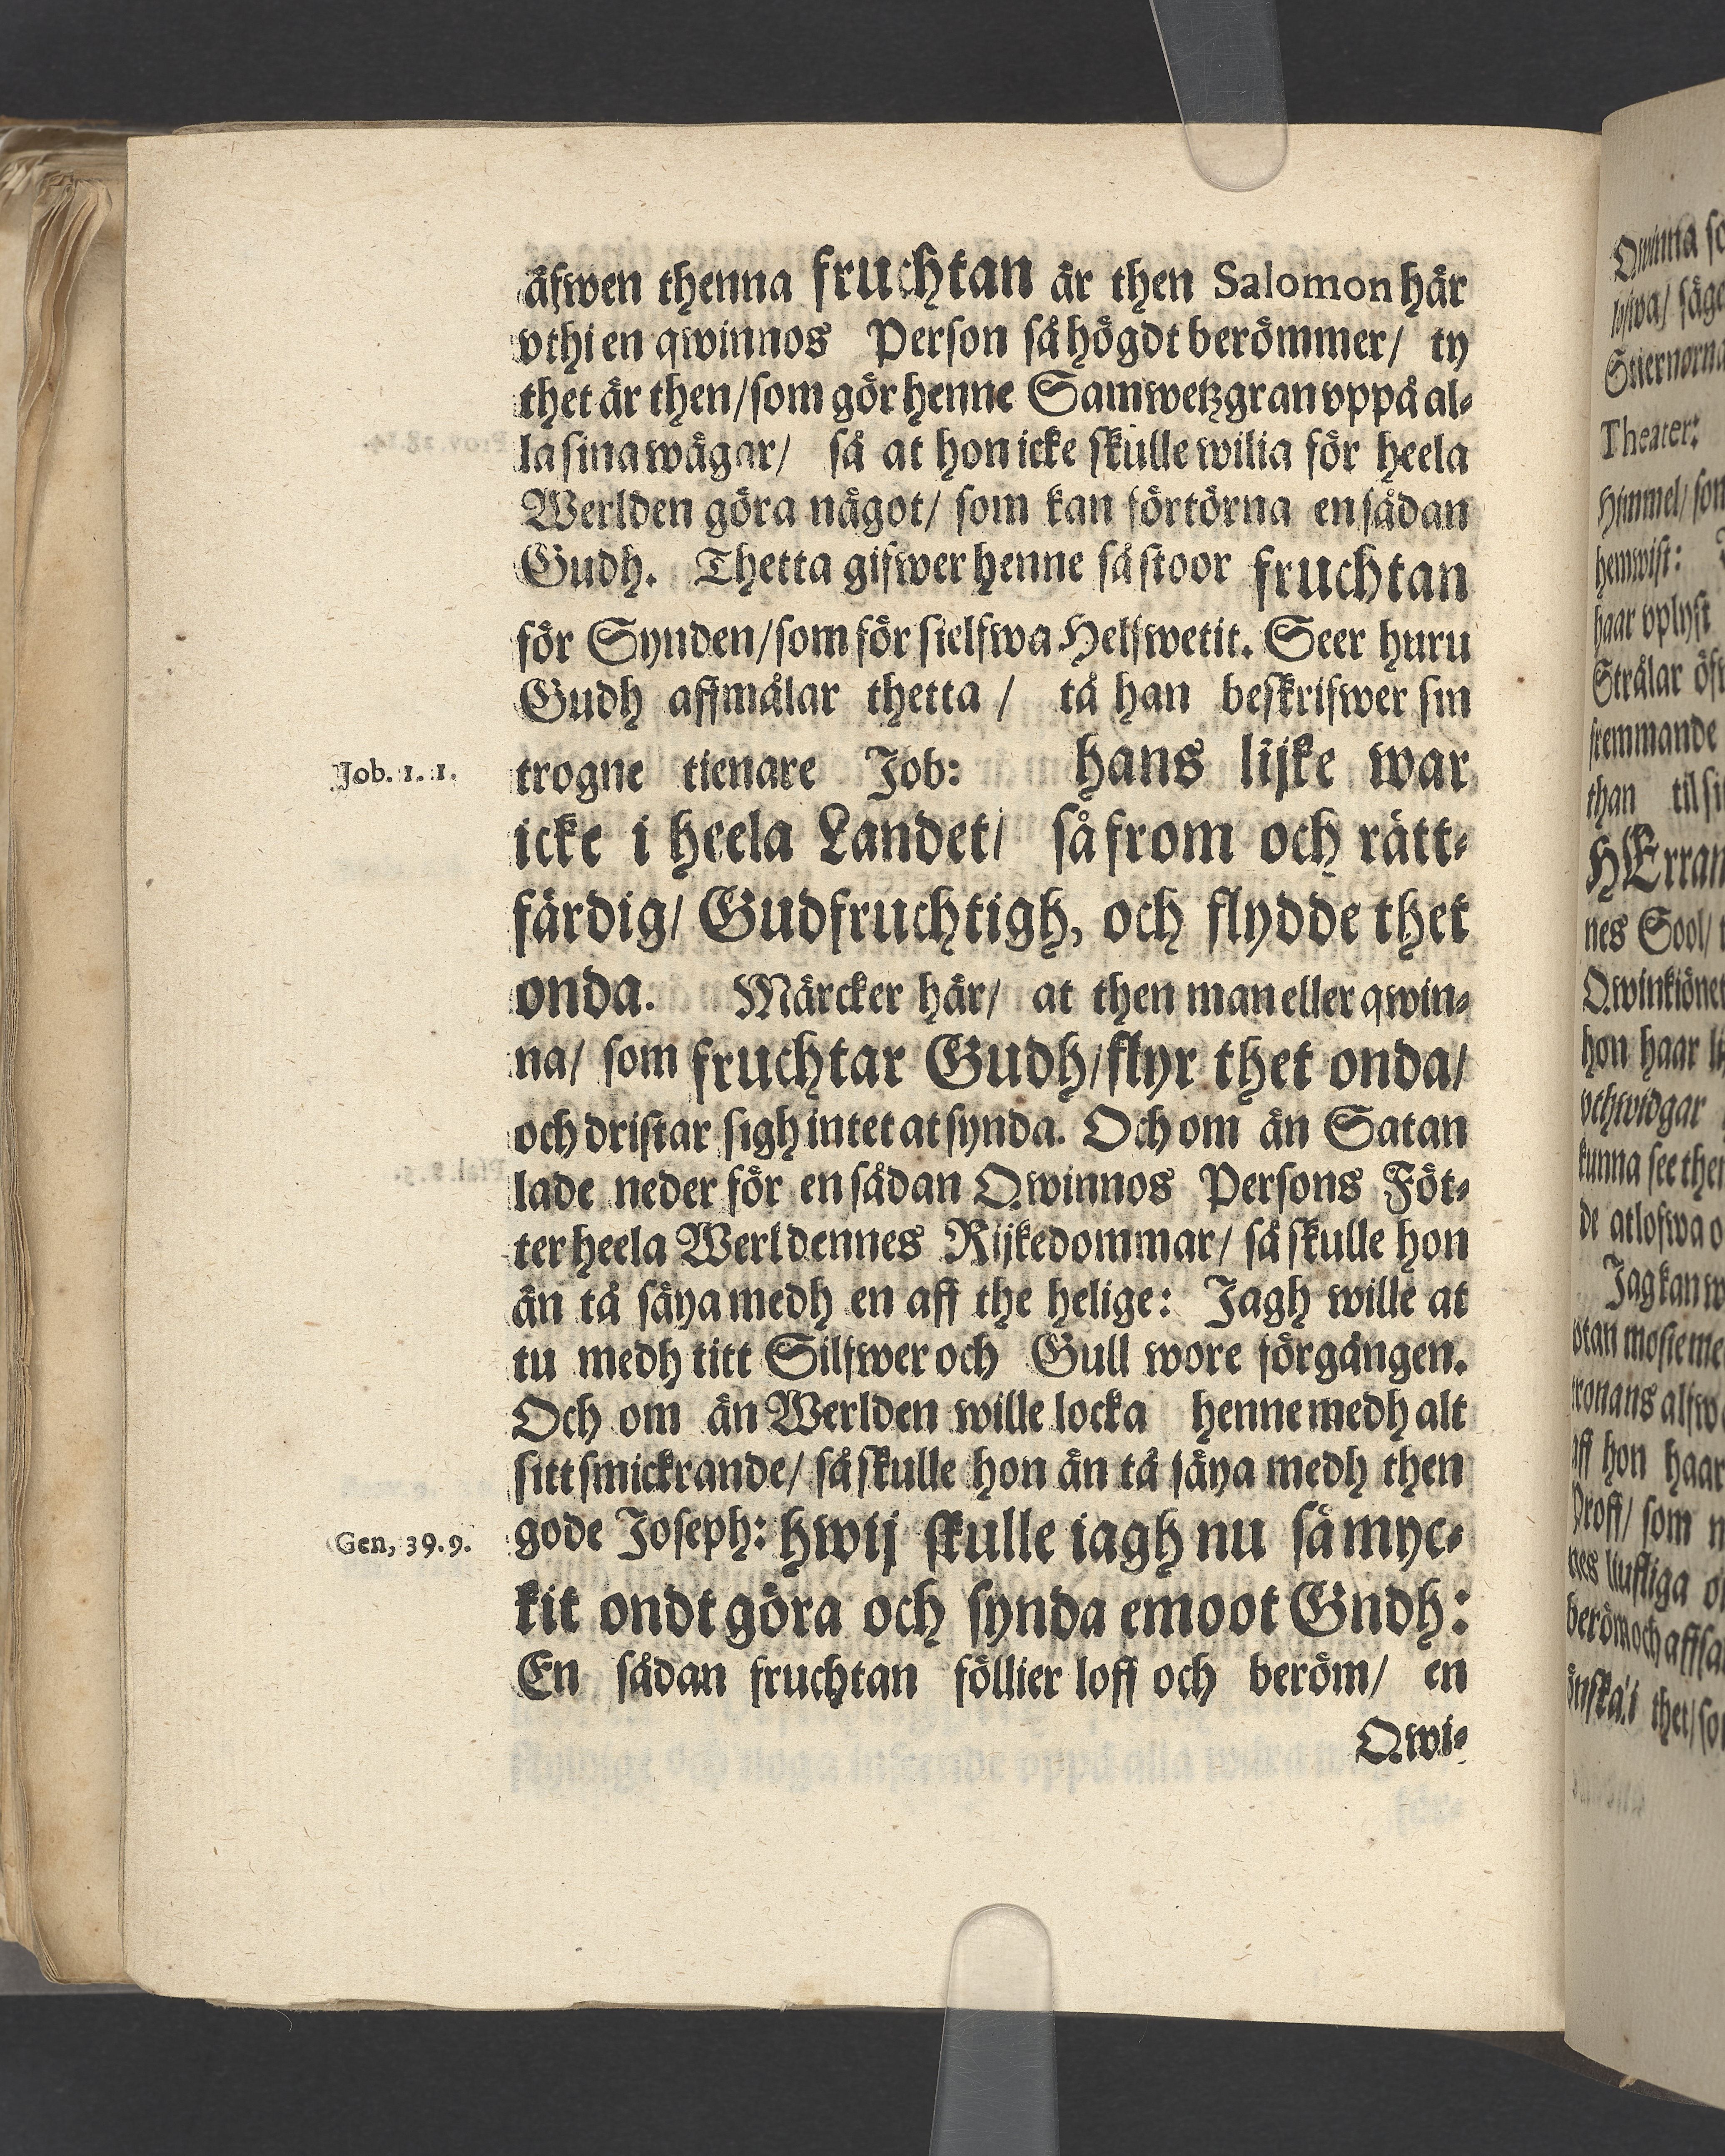 äfwen thenna fruchtan är then Salomon här
vthi en qwinnos Person så högdt berömmer/ ty
thet är then/ som gör henne Samwetzgran vppå al-
la sina wägar/ så at hon icke skulle wilia för heela
Werlden göra något/ som kan förtörna en sådan
Gudh. Thetta gifwer henne så stoor fruchtan
för Synden/ som för sielfwa Helfwetit. Seer huru
Gudh affmålar thetta / tå han beskrifwer sin
Job. 1. 1. trogne tienare Job: hans lijke war
icke i heela Landet/ så from och rätt-
färdig/ Gudfruchtigh, och flydde thet
onda. Märcker här/ at then man eller qwin-
na/ som fruchtar Gudh/ flyr thet onda/
och dristar sigh intet at synda. Och om än Satan
lade neder för en sådan Qwinnos Persons Föt-
ter heela Werldennes Rijkedommar/ så skulle hon
än tå säya medh en aff the helige: Jagh wille at
tu medh titt Silfwer och Gull wore förgången.
Och om än Werlden wille locka henne medh alt
sitt smickrande/ så skulle hon än tå säya medh then
Gen, 39. 9. gode Joseph: hwij skulle iagh nu så myc-
kit ondt göra och synda emoot Gndh:
En sådan fruchtan föllier loff och beröm/ en
Qwi-
Qwinna
Stiernorna
Theater:
Himmel/
hemwist:
haar vplyst
Strålar
fremmande
than
HErran
nes Sool/
Qwinkiönet
hon haar
vthwidgar
kunna see
de at lofwa
Jag kan
vtan
aff hon haar
Proff/ som
beröm och
thet/